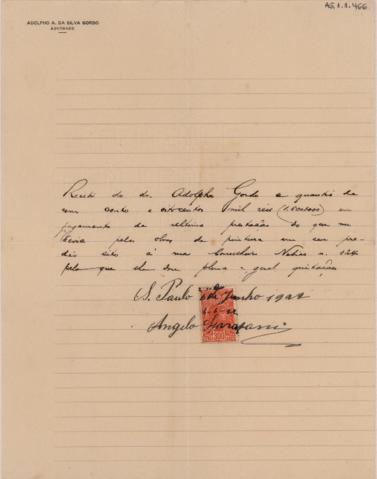 ADOLPHO A. DA SILVA GORDO
ADVOGADO
AG.1.1.466
Recebi do dr. Adolpho Gordo a quantia de
um conto e oitocentos mil réis em
pagamento da ultima prestação do que me
devia pelas obras de pintura em seu pre-
dio sito á rua Conselheiro Nebias n.
pelo que dou plena e geral quitação
S. Paulo 6 de Junho 1922
Angelo